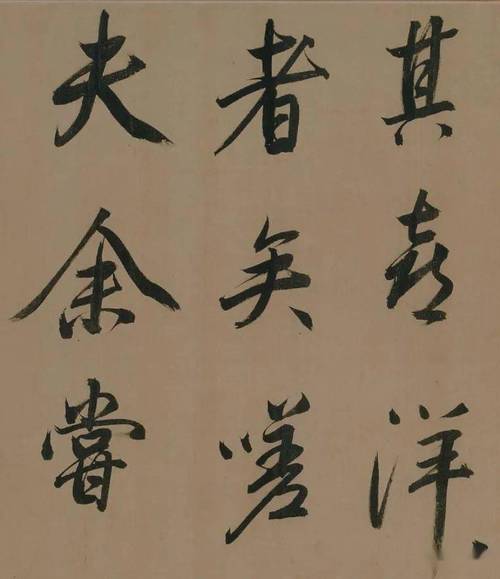 其喜洋、
者矣嗟
夫余嘗